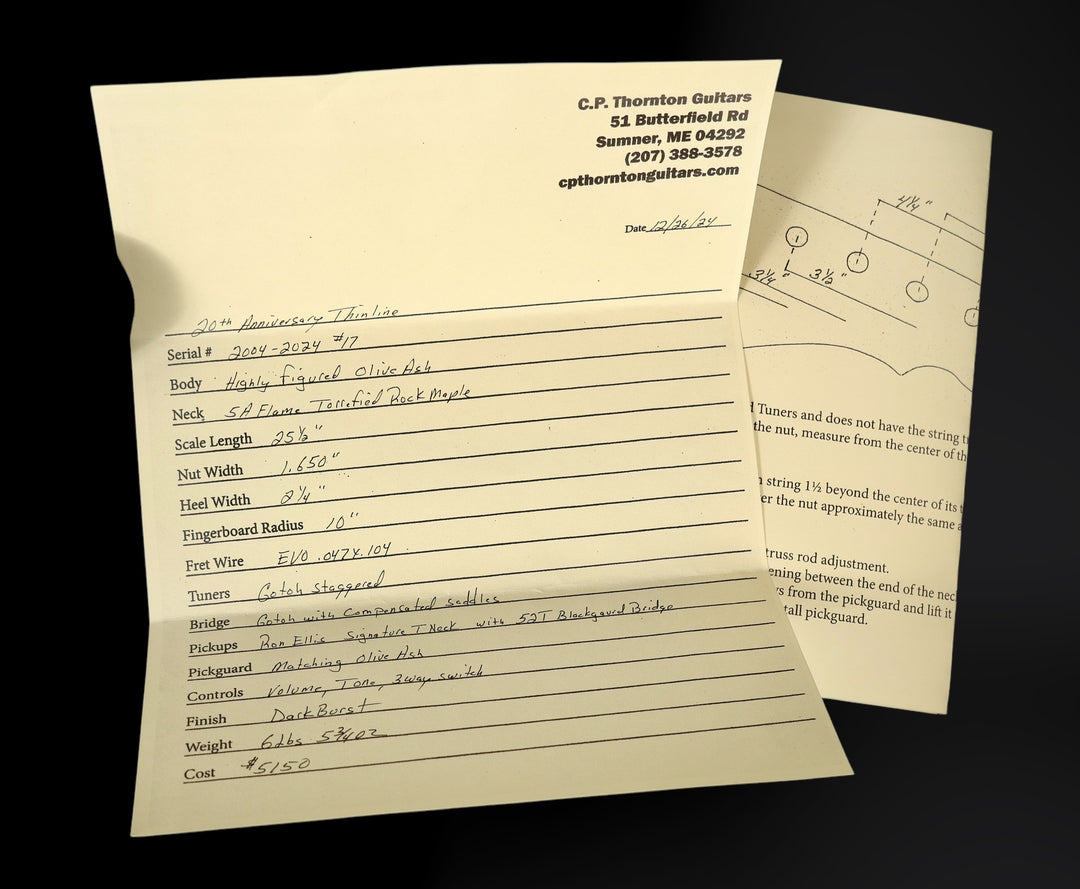 C.P. Thornton Guitars
51 Butterfield Rd
Sumner, ME 04292
(207) 388-3578
cpthorntonguitars.com
Date 12/26/24
20th Anniversary Thinline
Serial # 2004-2024 #17
Body Highly figured Olive Ash
Neck 5A Flame Torrefied Rock Maple
Scale Length 25½"
Nut Width 1.650"
Heel Width 2¼"
Fingerboard Radius 10"
Fret Wire EVO .047X.104
Tuners Gotoh Staggered
Bridge Gotoh with Compensated Saddles
Pickups Ron Ellis Signature T Neck with 52T Blackgaurd Bridge
Pickguard Matching Olive Ash
Controls Volume, Tone, 3way switch
Finish DarkBurst
Weight 6Lbs 5¾oz
Cost $5150
4¼"
3¼" 3½"
Tuners and does not have the string
the nut, measure from the center of th
string 1½ beyond the center of its
er the nut approximately the same a
truss rod adjustment.
ening between the end of the nec
s from the pickguard and lift it
tall pickguard.